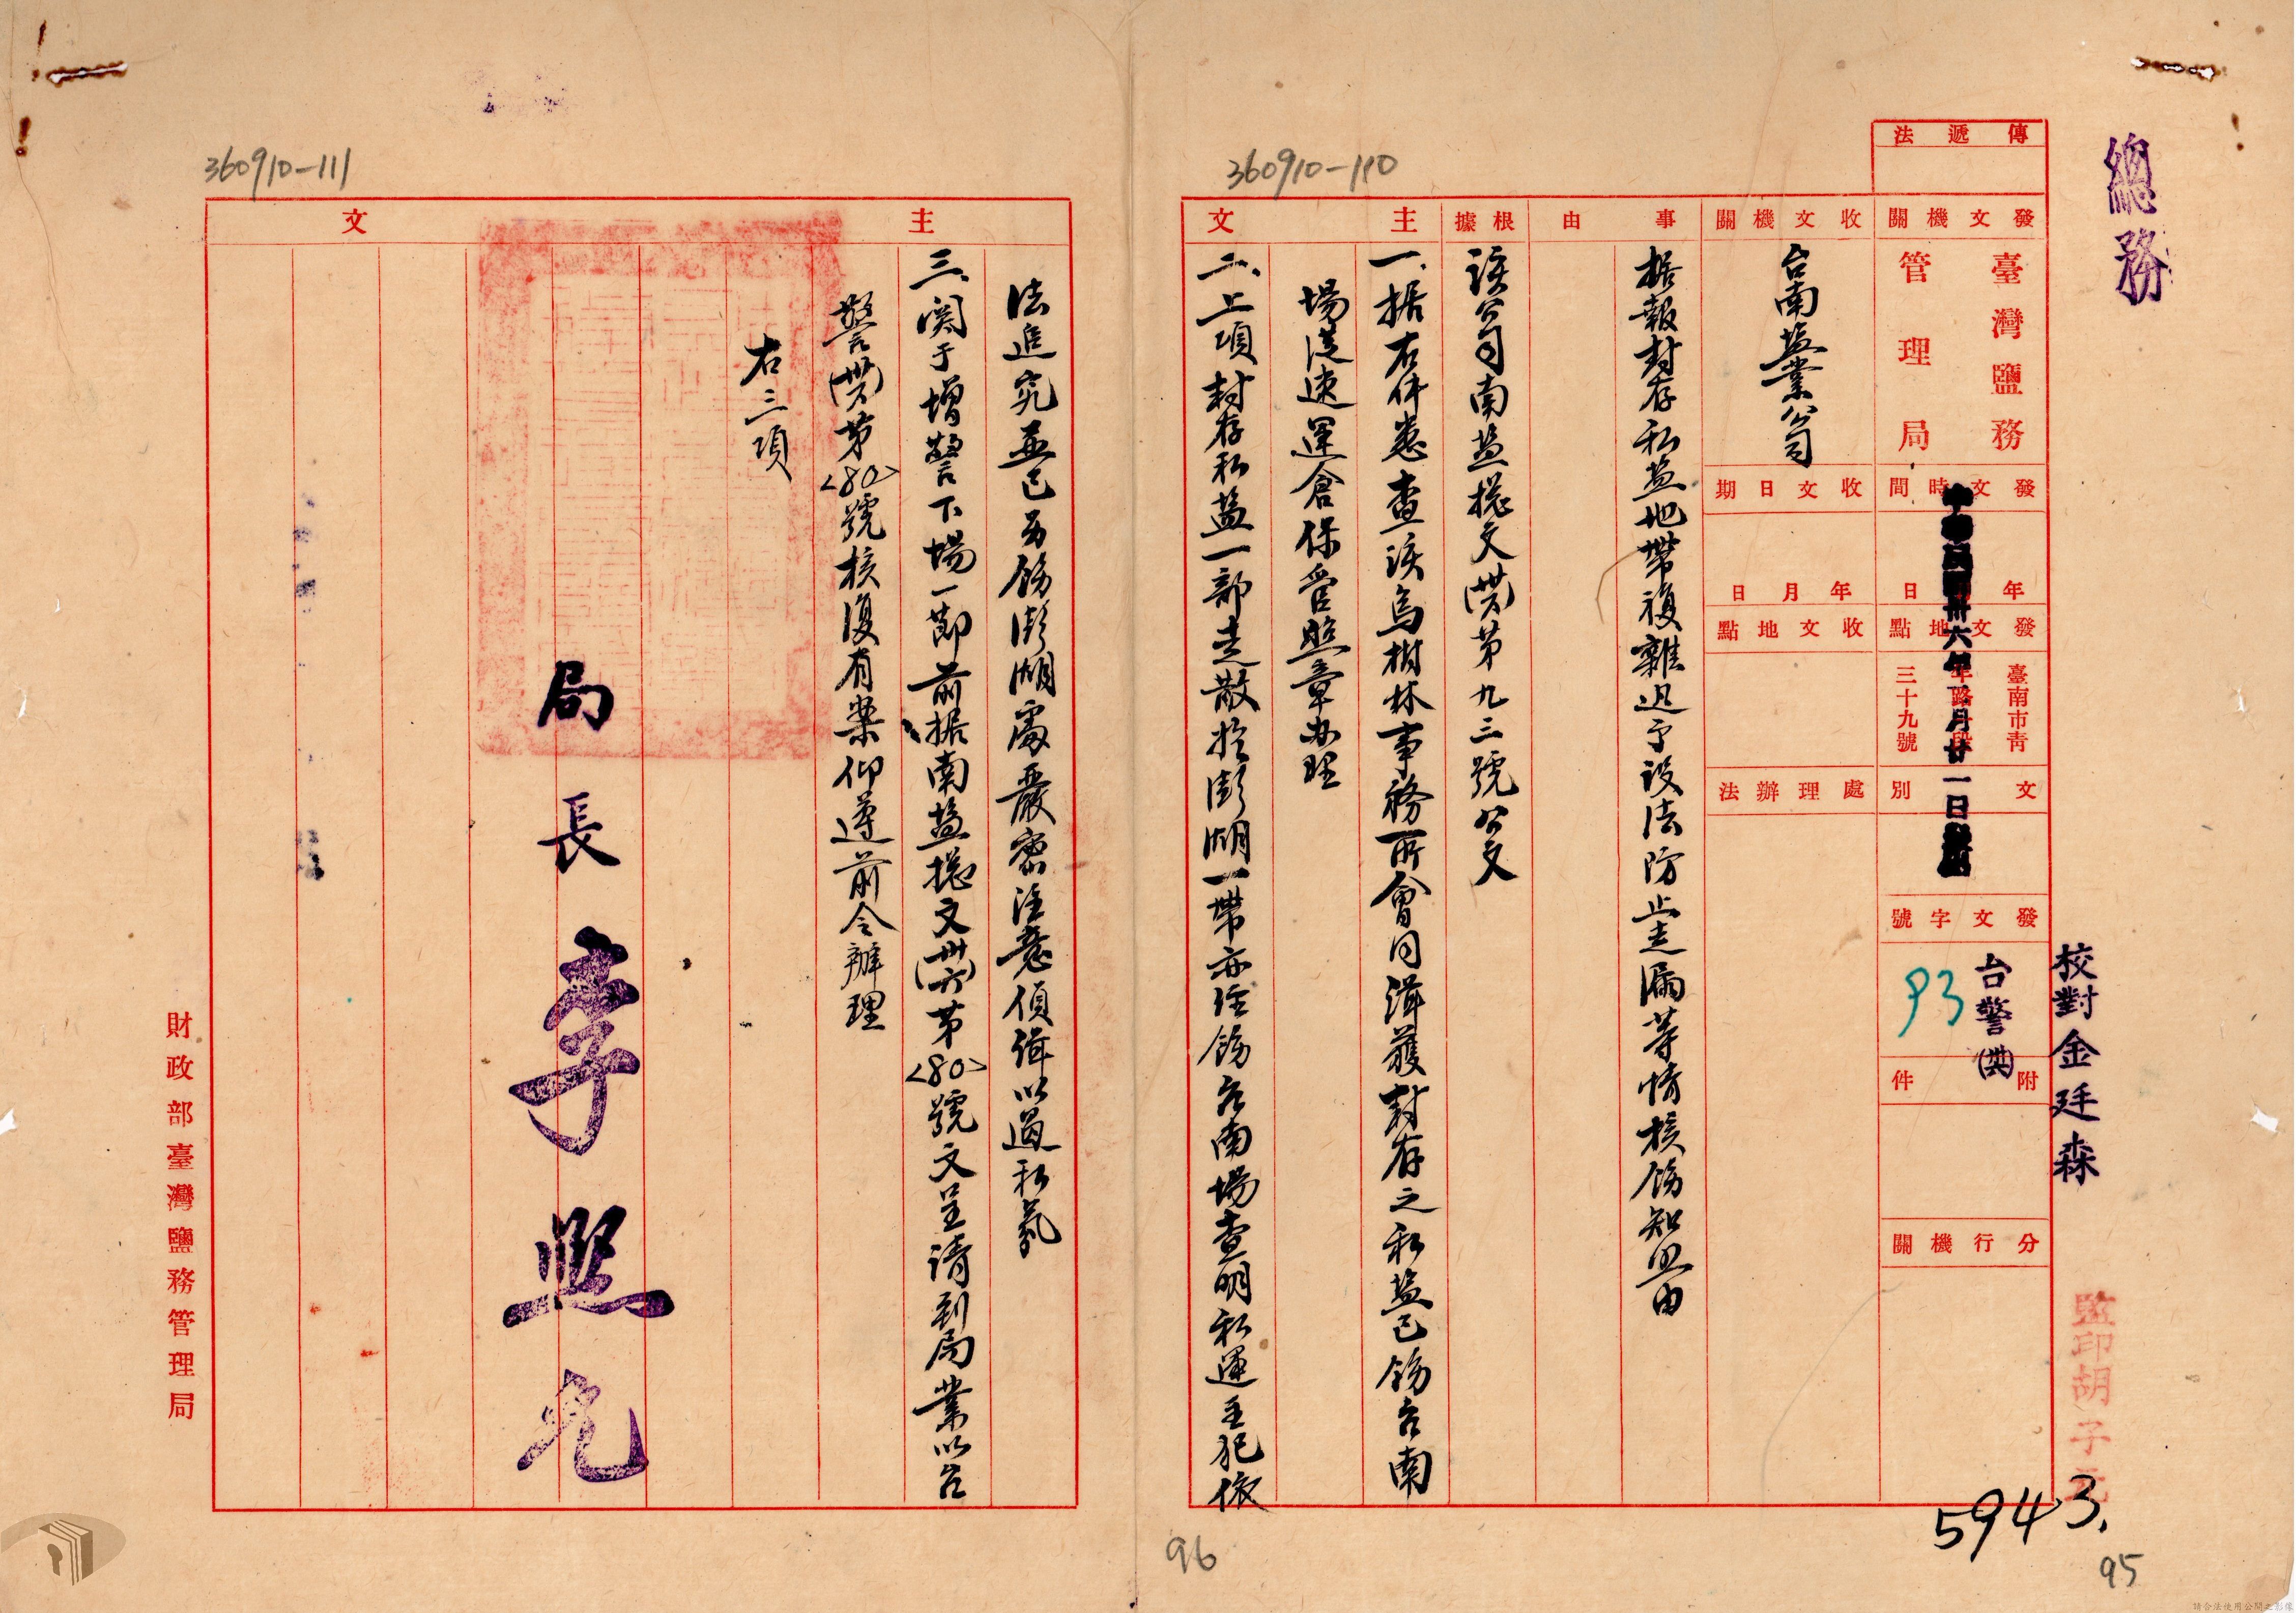 總務
傳遞法
發文機關
臺灣鹽務
管理局
發文時間
年月日
卅六年
月廿一日
發文地點
臺南市青
年路 段
三十九號
文別
發文字號
台警(卅六)
93
附件
分行機關
校對金廷森
監印胡子元
收文機關
台南盐業公司
收文日期
年月日
收文地點
處理辦法
事由
据報封存私盐地帶複雜迅予設法防止走漏等情核飭知照由
根據
該公司南盐總文(卅六)第九三號公文
主文
一、据右件悉查該烏樹林事務所會同緝獲封存之私盐已飭台南
場從速運倉保管照章办理
二、上項封存私盐一部走散於澎湖一帶亦經飭台南場查明私運主犯依
360910-110
5943.
95
96
360910-111
主文
法追究並已另飭澎湖處嚴密注意偵緝以遏私氛
三、関于增警下場一節前据南盐總文(卅六)第<80>號文呈請到局業以台
警(卅六)第<80>號核復有案仰遵前令辦理
右三項
局長李熙光
財政部臺灣鹽務管理局
請合法使用公開之影像